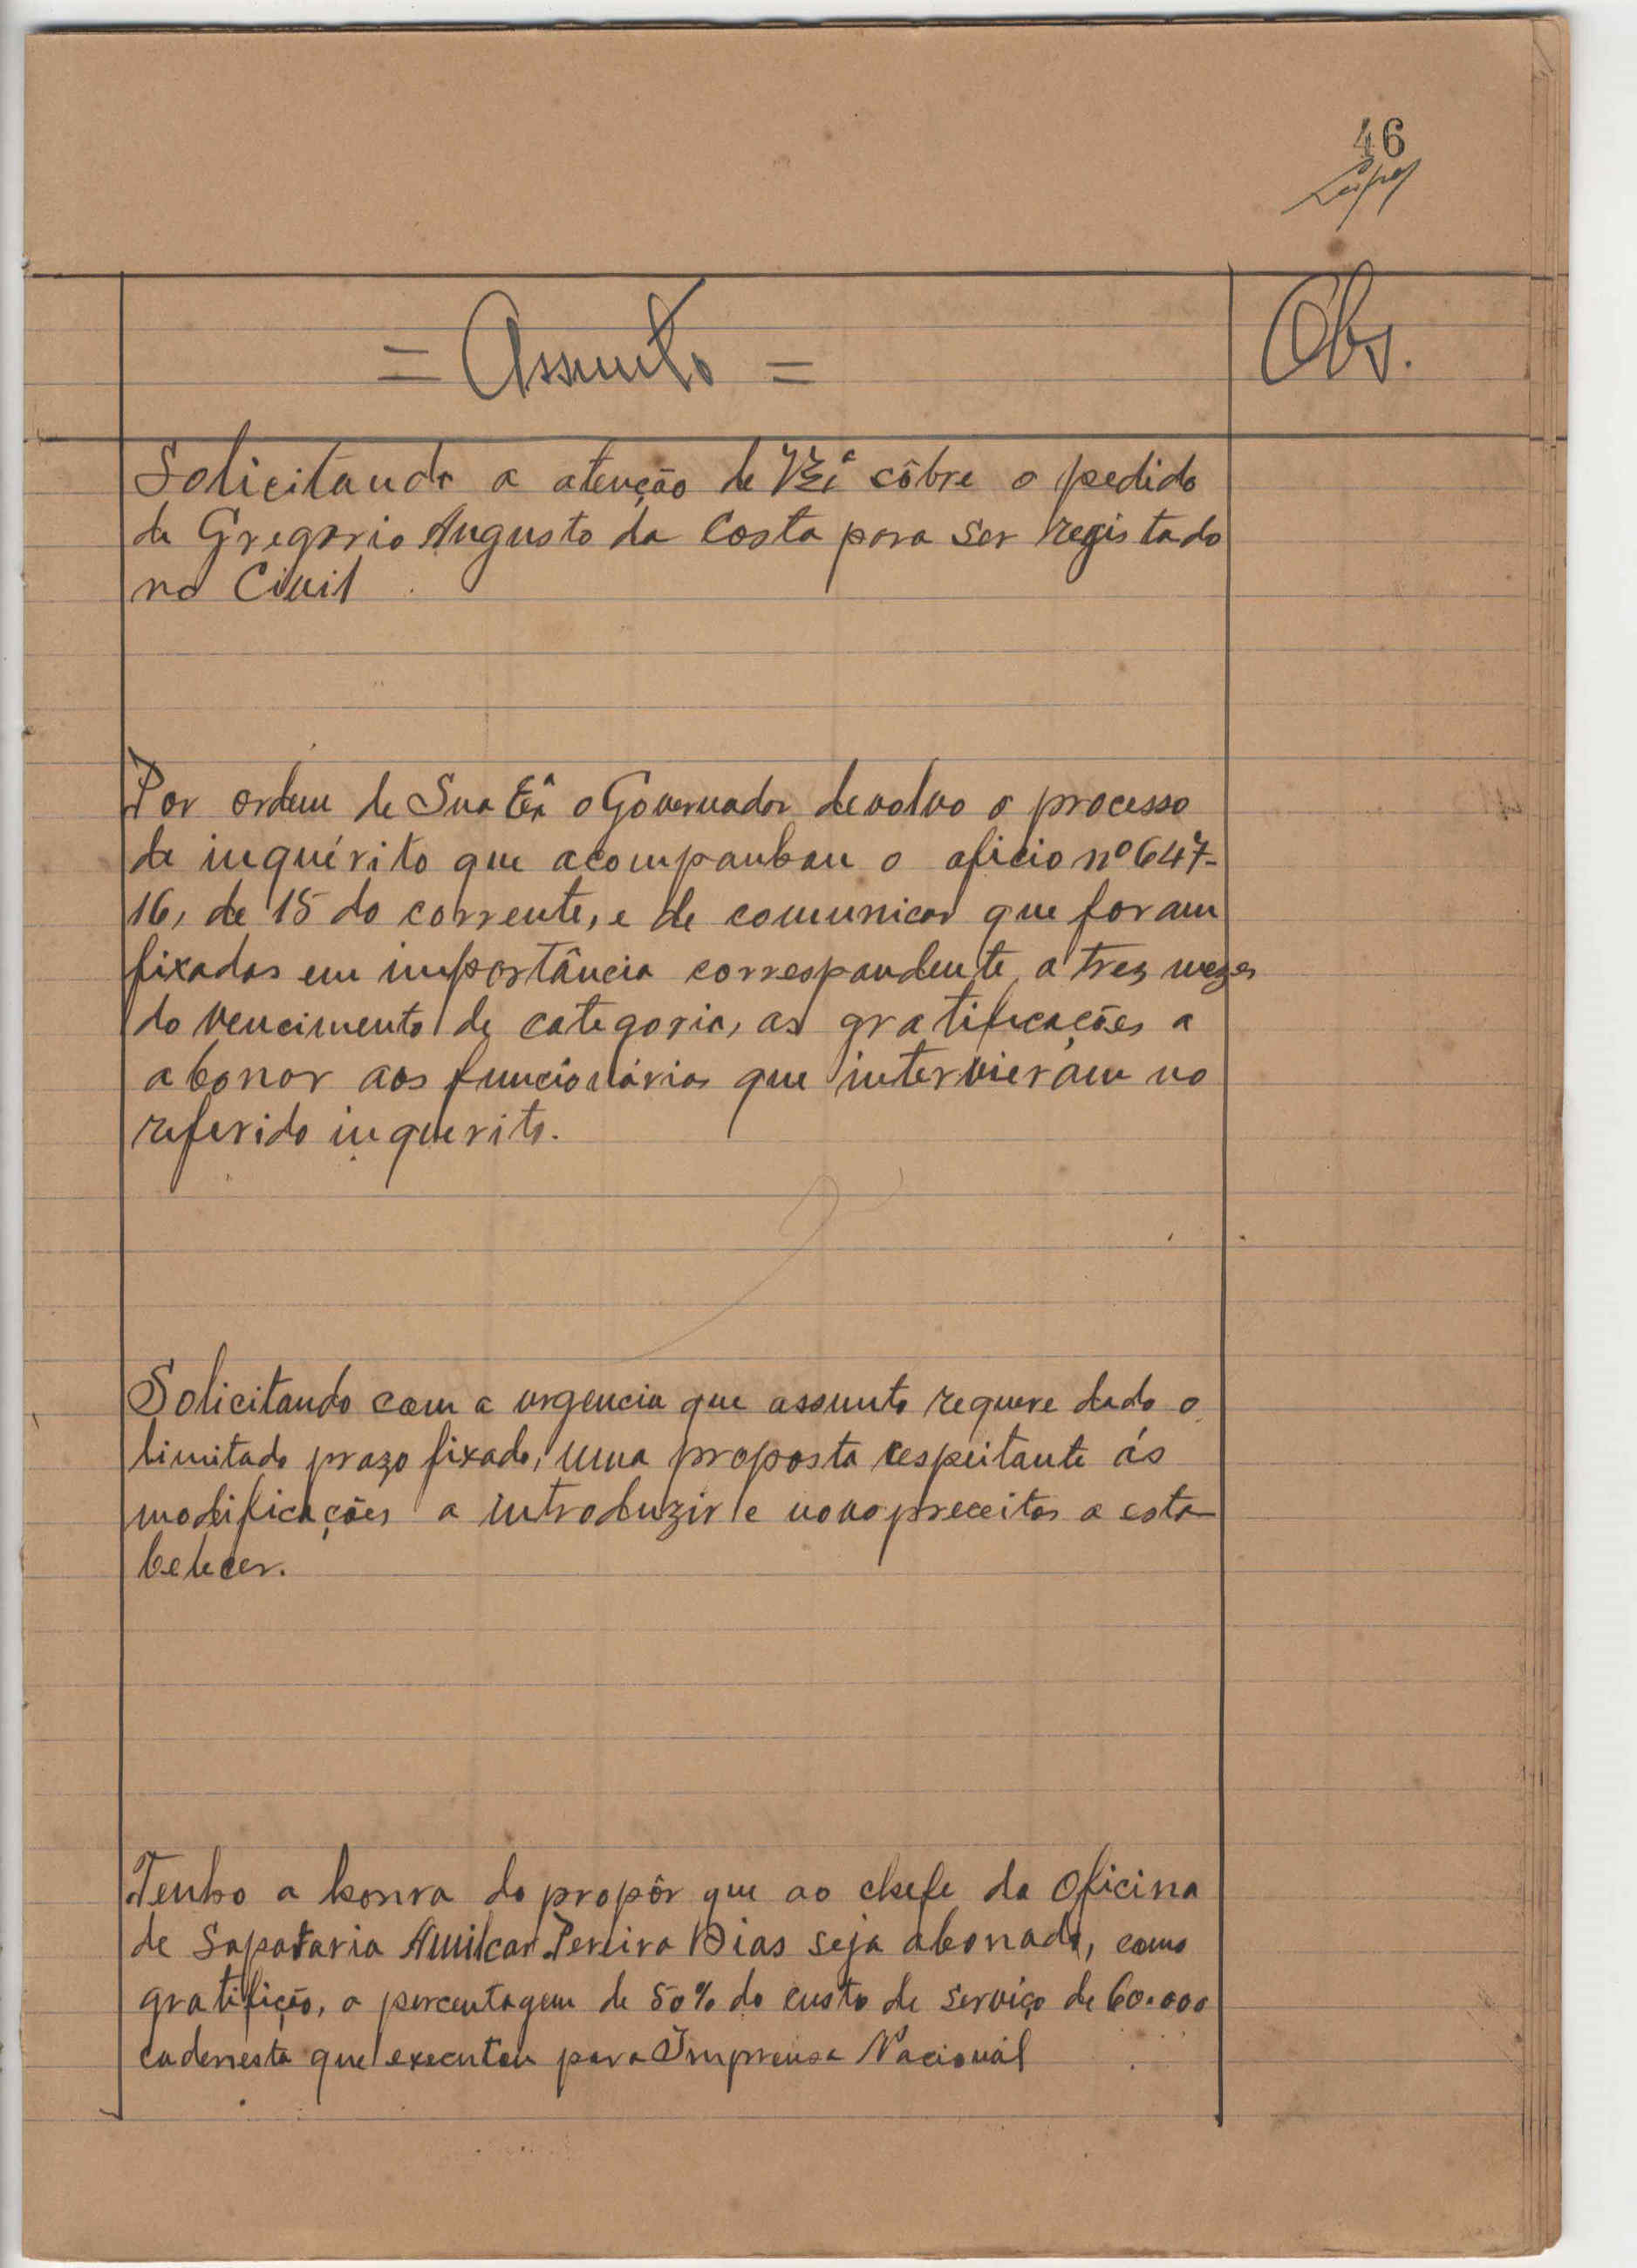 46
= Assunto =
Obs.
Solicitando a atenção de côbre o pedido
de Gregorio Augusto da Costa para ser registado
no Civil
Por ordem de Sua Exª o Governador devolvo o processo
de inquérito que acompanhou o oficio nº 647-
16, de 15 do corrente, e de comunicar que foram
fixadas em importância correspondente a tres mezes
do vencimento de categoria, as gratificações a
abonar aos funcionários que intervieram no
referido inquerito.
Solicitando com a urgencia que assunto requere dado o
limitado prazo fixado, uma proposta respeitante ás
modificações a introduzir e novo preceitos a esta-
belecer.
Tenho a honra do propôr que ao chefe da Oficina
de Sapataria Amilcar Pereira Dias seja abonado, como
gratifição, a percentagem de 50% do custo de serviço de 60.000
que executou para Imprensa Nacional